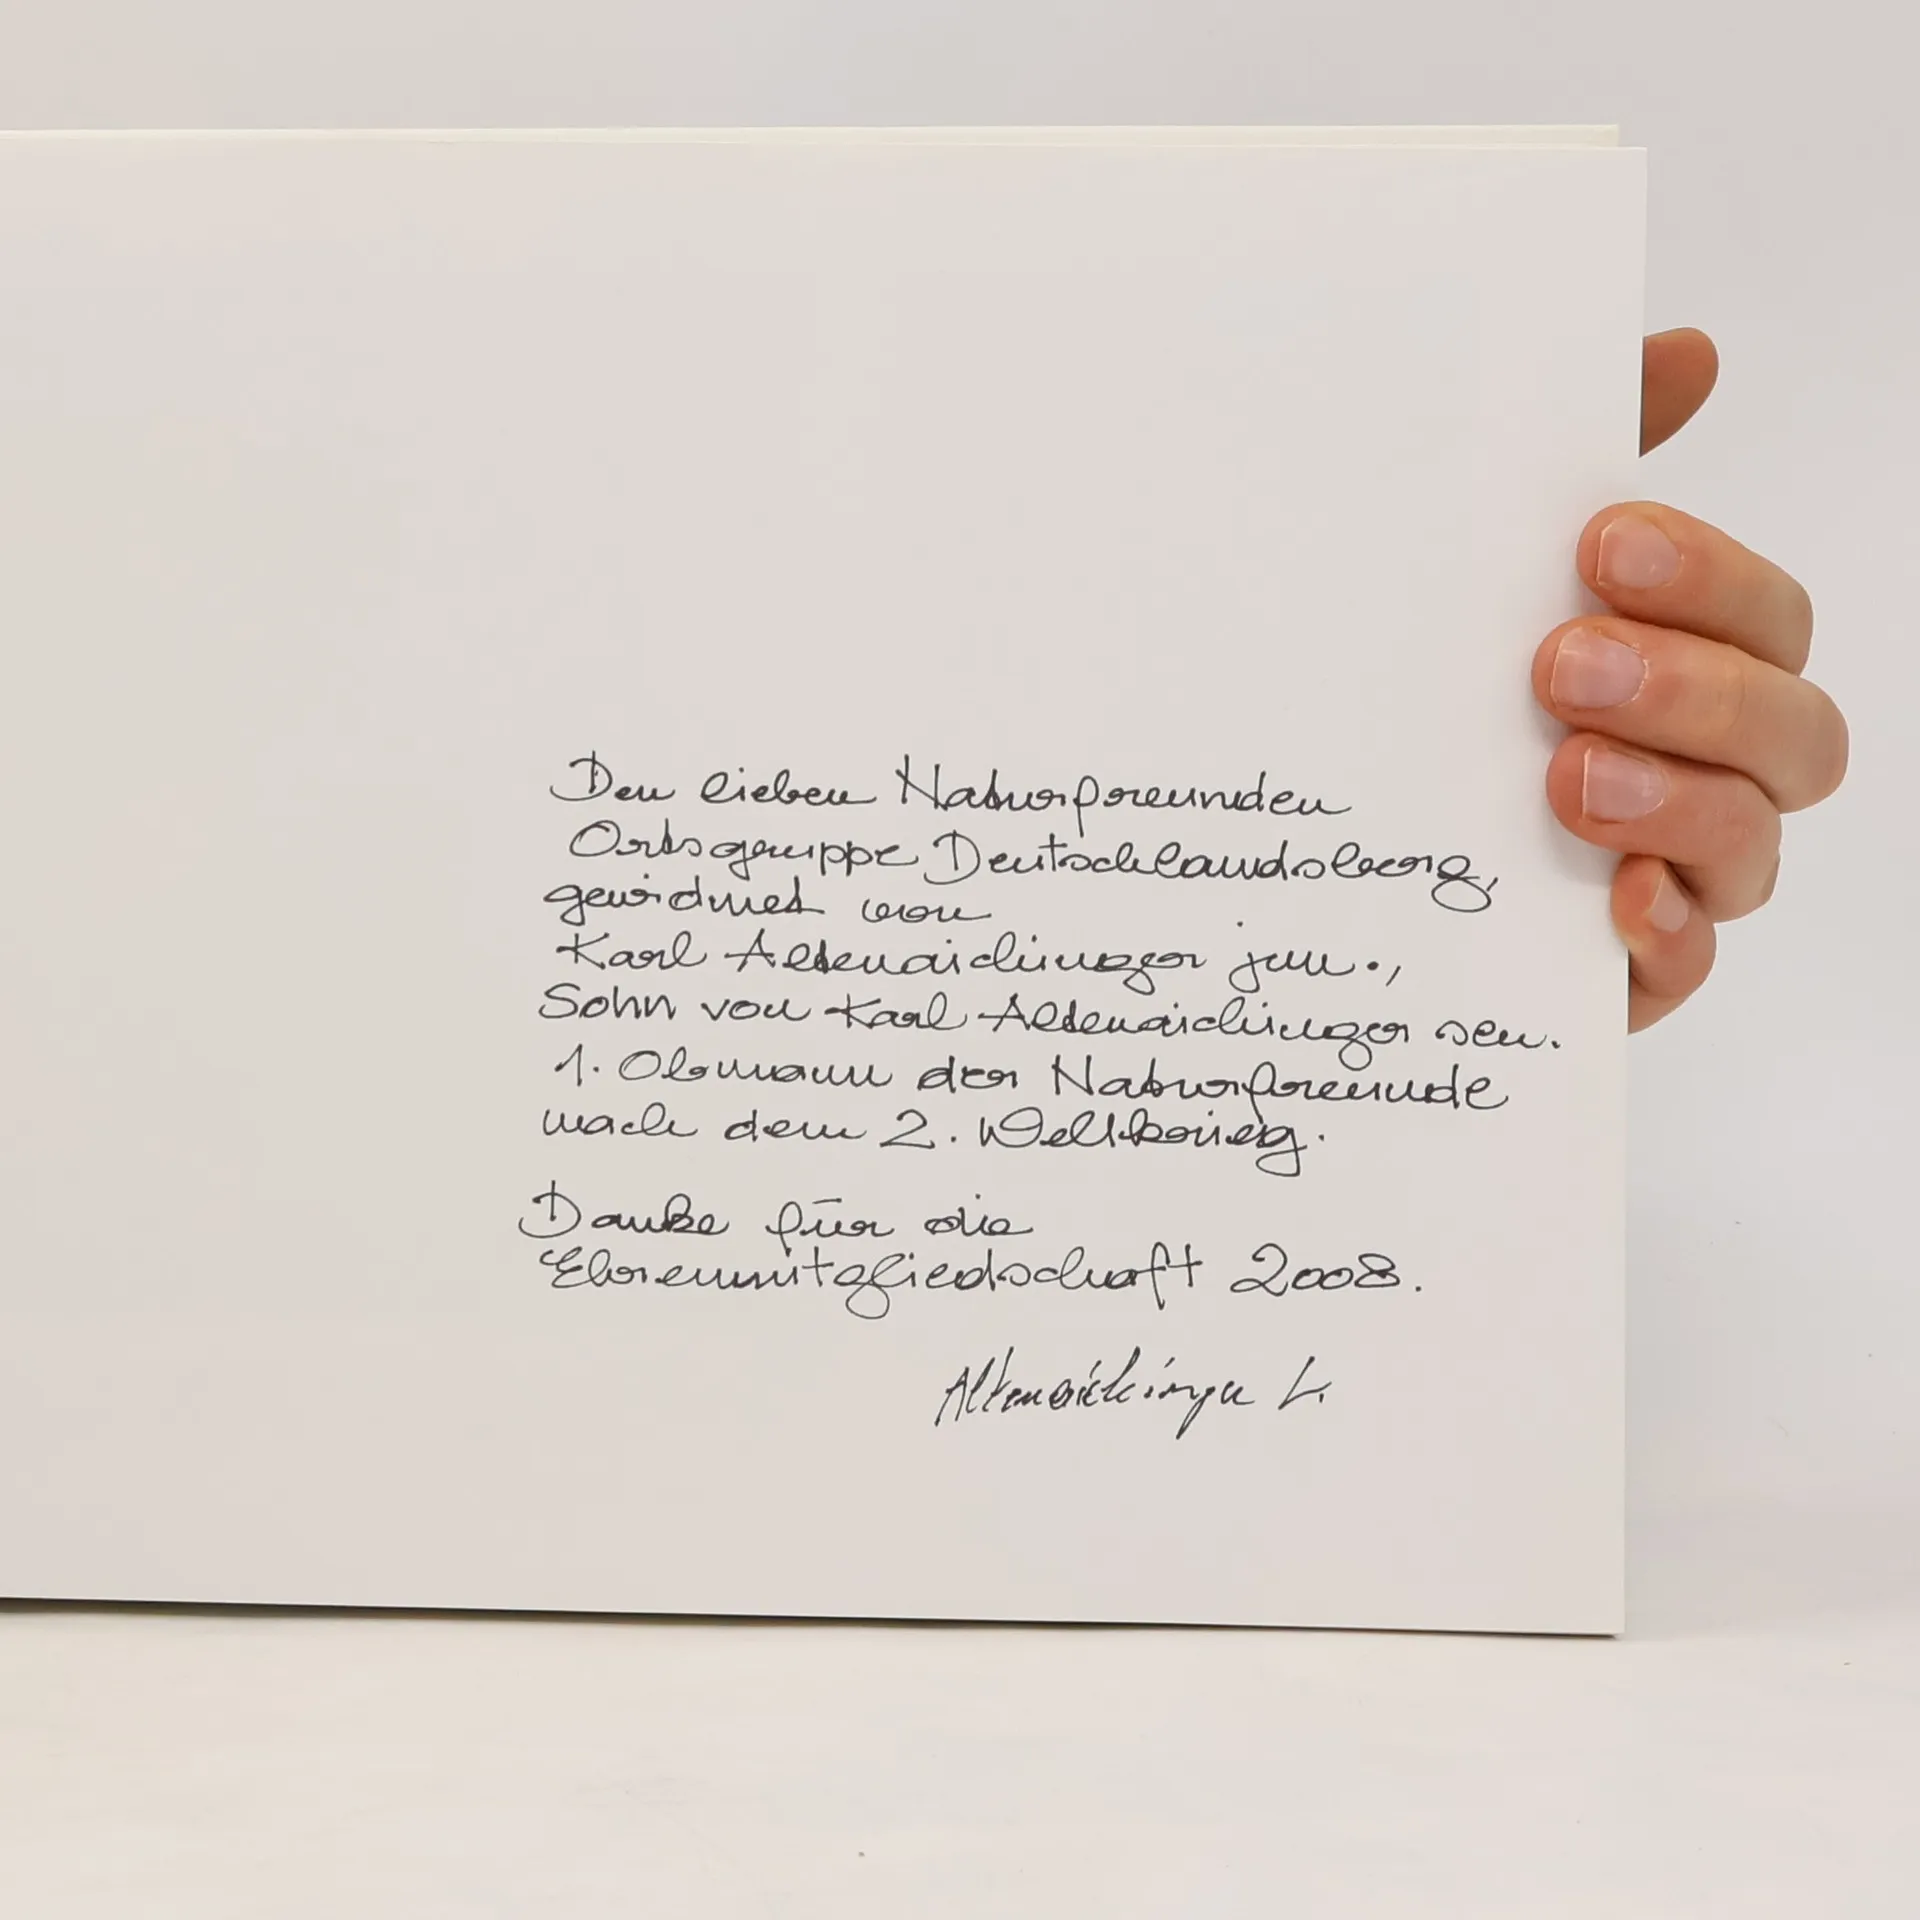 Den lieben Naturfreunden
Ortsgruppe Deutschlandsberg,
gewidmet von
Karl Altenaichinger jun.,
Sohn von Karl Altenaichinger sen.
1. Obmann der Naturfreunde
nach dem 2. Weltkrieg.
Danke für die
Ehrenmitgliedschaft 2008.
Altenaichinger K.